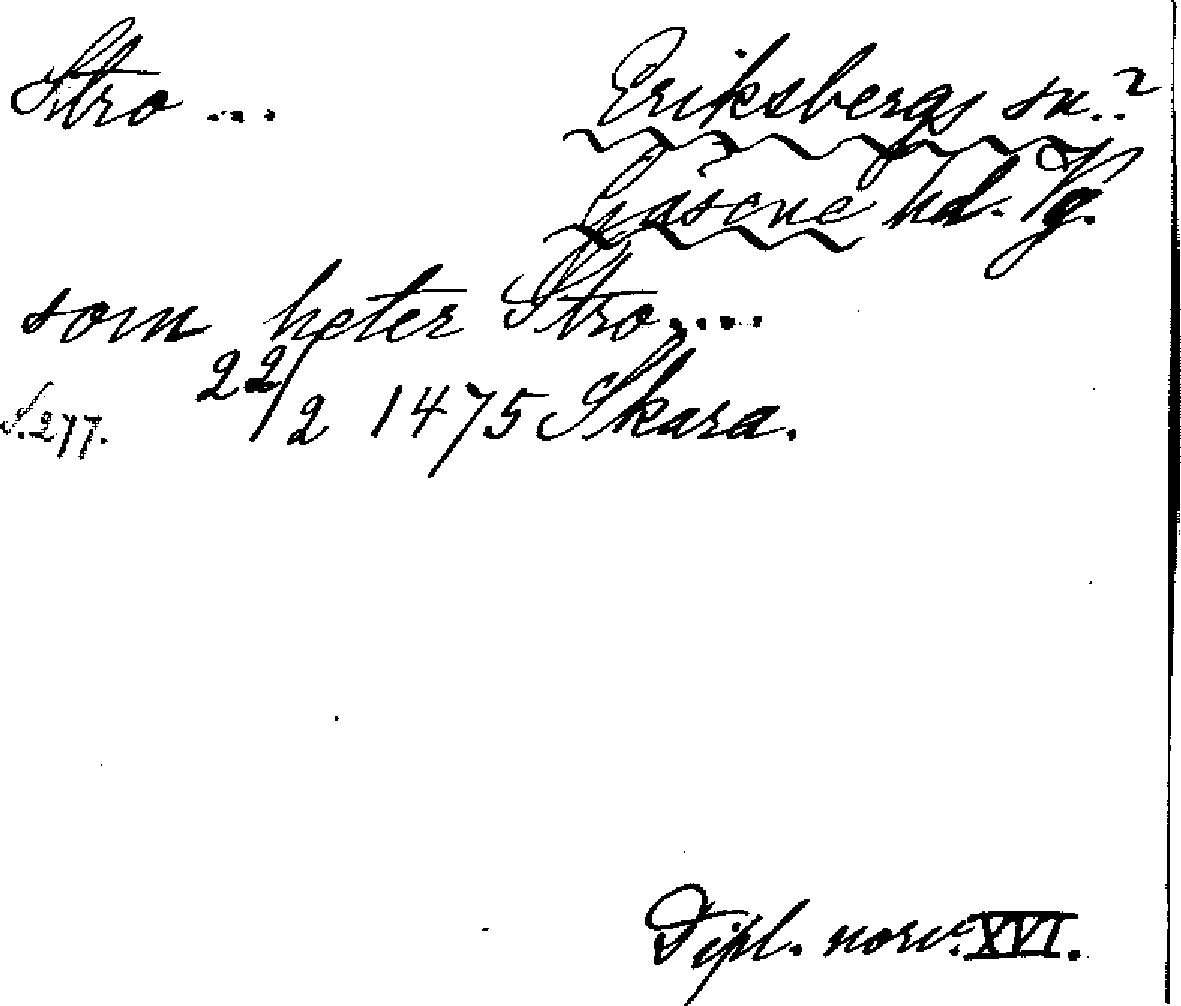 Stro ... Eriksbergs sn.?
Gäsene hd. Vg.
som heter Stro....
S.277. 22/2 1475 Skara.
Dipl. norv. XVI.